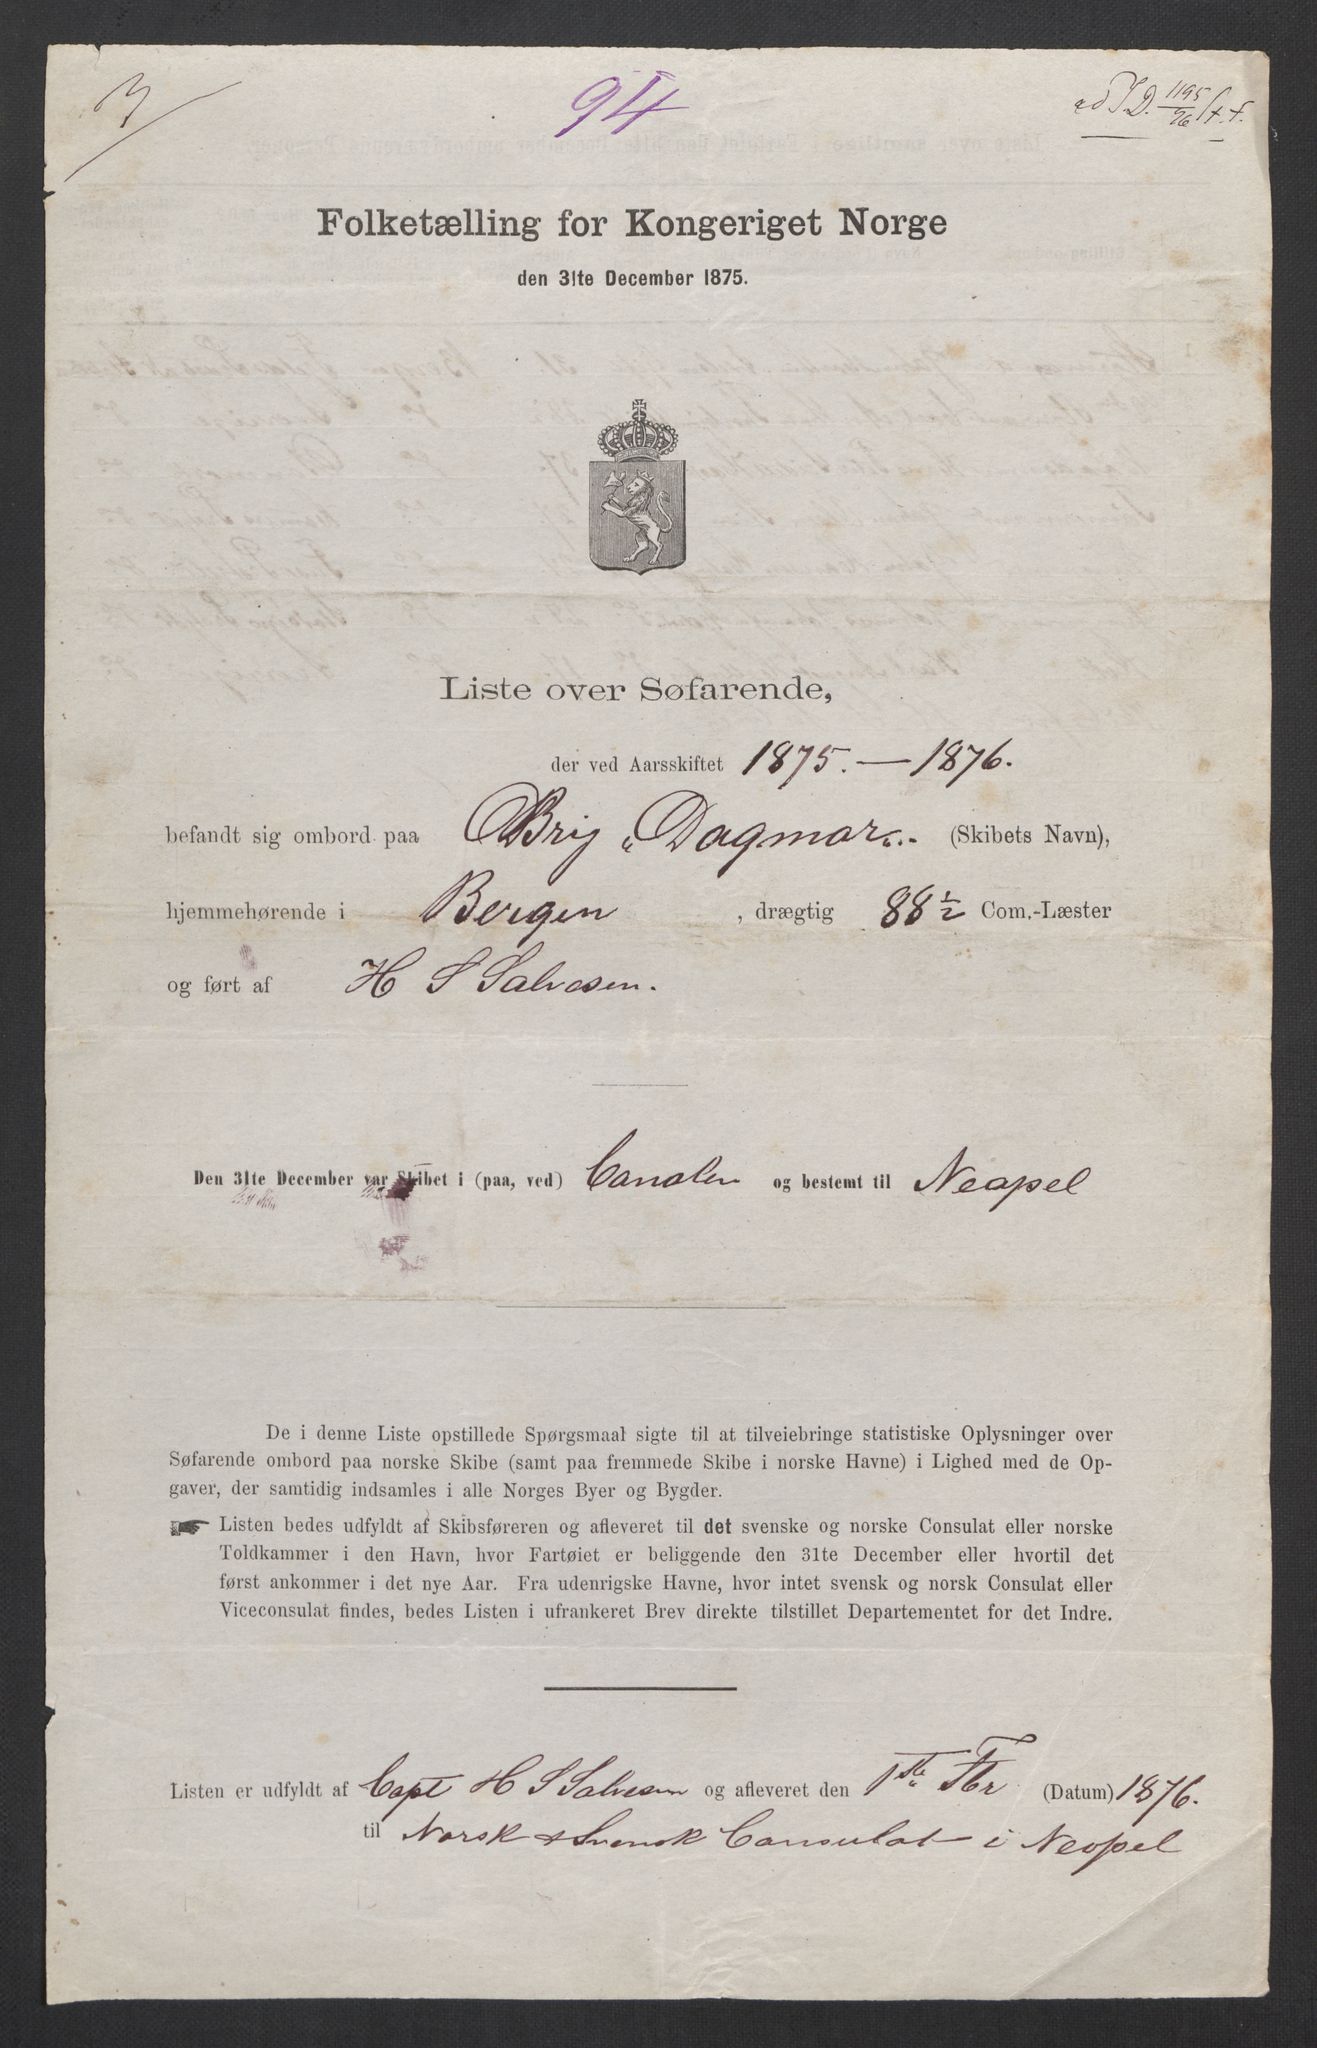 94
ad J.D. 1195/76
Folketælling for Kongeriget Norge
den 31te December 1875.
Liste over Søfarende,
der ved Aarsskiftet 1875. — 1876.
befandt sig ombord paa Brig „Dagmar“. (Skibets Navn),
hjemmehørende i Bergen, drægtig 88 1/2 Com.-Læster
og ført af H S Salvesen.
Den 31te December var Skibet i (paa, ved) Canalen og bestemt til Neapel
De i denne Liste opstillede Spørgsmaal sigte til at tilveiebringe statistiske Oplysninger over
Søfarende ombord paa norske Skibe (samt paa fremmede Skibe i norske Havne) i Lighed med de Op-
gaver, der samtidig indsamles i alle Norges Byer og Bygder.
☛ Listen bedes udfyldt af Skibsføreren og afleveret til det svenske og norske Consulat eller norske
Toldkammer i den Havn, hvor Fartøiet er beliggende den 31te December eller hvortil det
først ankommer i det nye Aar. Fra udenrigske Havne, hvor intet svensk og norsk Consulat eller
Viceconsulat findes, bedes Listen i ufrankeret Brev direkte tilstillet Departementet for det Indre.
Listen er udfyldt af Capt H S Salvesen og afleveret den 1ste Fbr (Datum) 1876.
til Norsk & Svensk Consulat i Neapel